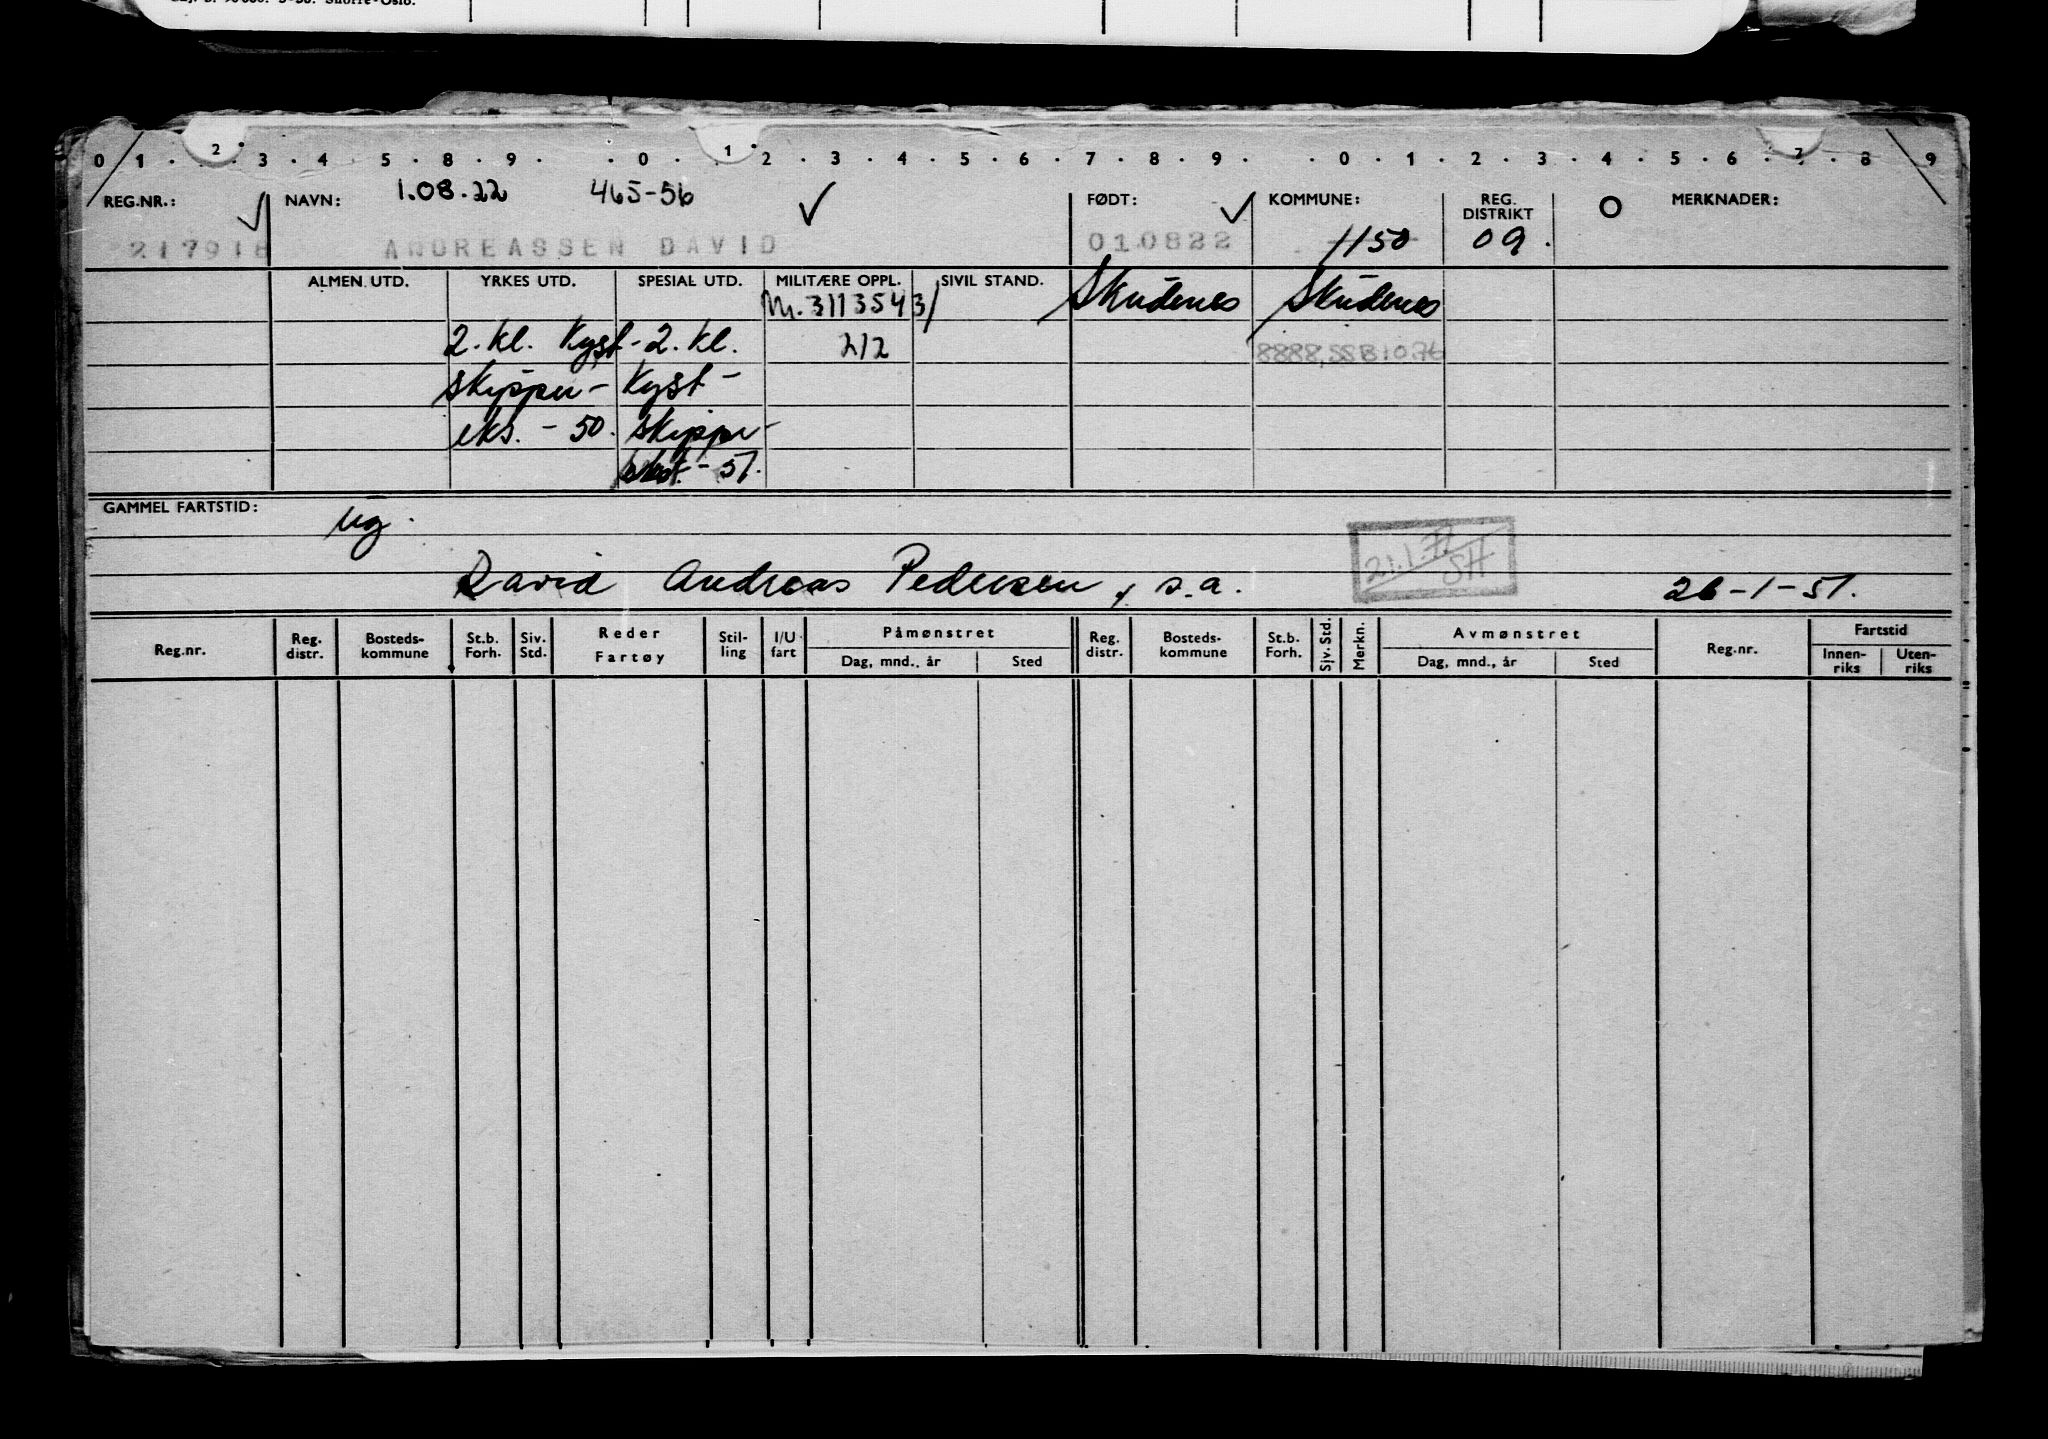 90000. 3-50. Snorre-Oslo.
0 1 2 3 4 5 8 9 0 1 2 3 4 5 6 7 8 9 0 1 2 3 4 5 6 7 8 9
REG.NR.: NAVN: 1.08.22 465-56 FØDT: KOMMUNE: REG. DISTRIKT MERKNADER:
217918 ANDREASSEN DAVID 010822 1150 09.
ALMEN UTD. YRKES UTD. SPESIAL UTD. MILITÆRE OPPL. SIVIL STAND. Skudenes Skudenes
M. 3113543/
2. kl. Kyst- 2. kl. 212 8888,SSB1076
skipper- Kyst-
eks. - 50. skipper-
- 51.
GAMMEL FARTSTID: Ug.
21.1.77 SH
David Andreas Pedersen, s.a. 26-1-51.
Reg.nr. Reg. distr. Bosteds-kommune St.b. Forh. Siv. Std. Reder Fartøy Stil-ling I/U fart Påmønstret Reg. distr. Bosteds-kommune St.b. Forh. Siv. Std. Merkn. Avmønstret Reg.nr. Fartstid
Dag, mnd., år Sted Dag, mnd., år Sted Innen-riks Uten-riks